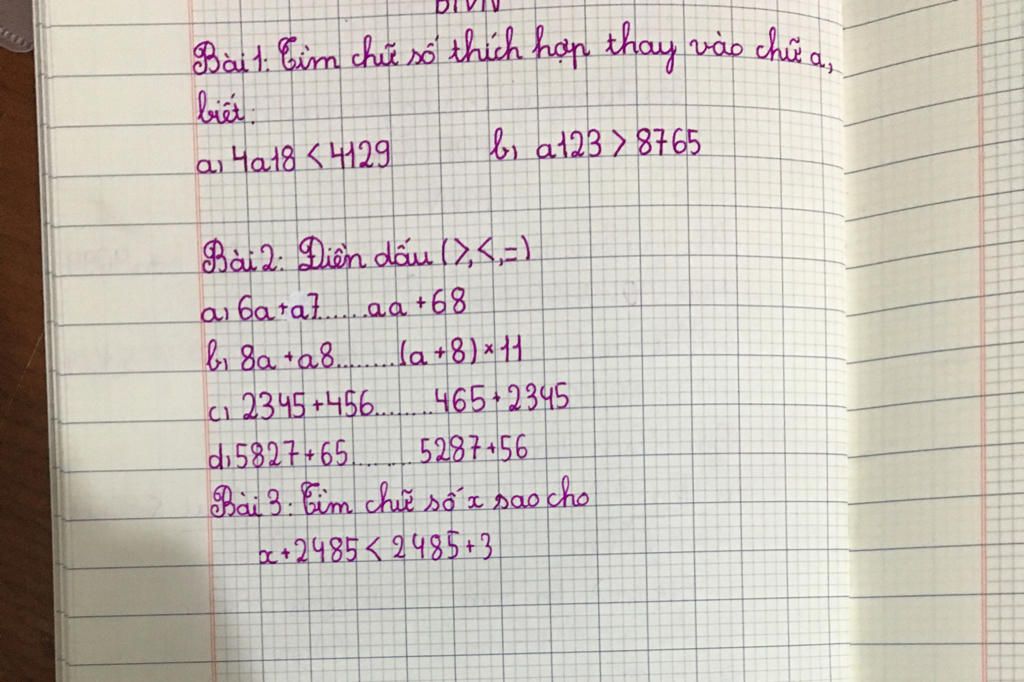 Bài 1: Tìm chữ số thích hợp thay vào chữ a,
biết:
a, 4a18 < 4129 b, a123 > 8765
Bài 2: Điền dấu (>, <, =)
a, 6a + a7......aa + 68
b, 8a + a8........(a + 8) × 11
c, 2345 + 456........465 + 2345
d, 5827 + 65........5287 + 56
Bài 3: Tìm chữ số x sao cho
x + 2485 < 2485 + 3